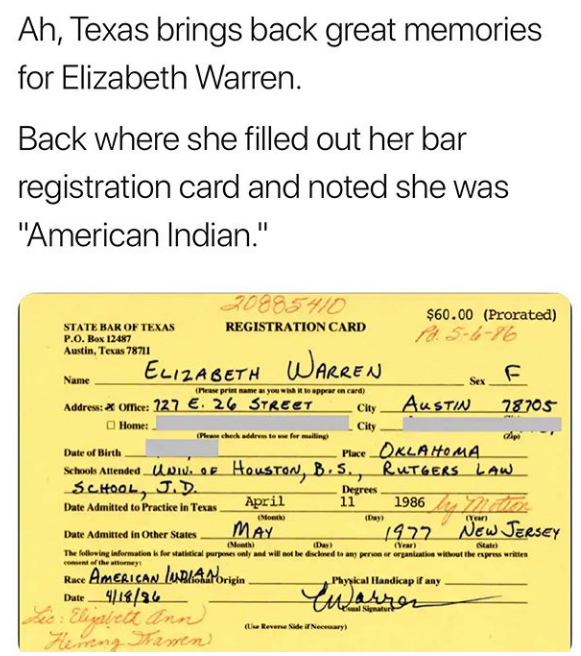 Ah, Texas brings back great memories
for Elizabeth Warren.
Back where she filled out her bar
registration card and noted she was
"American Indian."
20885410
$60.00 (Prorated)
STATE BAR OF TEXAS
REGISTRATION CARD
Pd. 5-6-86
P.O. Box 12487
Austin, Texas 78711
Name ELIZABETH WARREN Sex F
(Please print name as you wish it to appear on card)
Address: Office: 727 E. 26 STREET City AUSTIN 78705
Home: City
(Please check address to use for mailing) (Zip)
Date of Birth Place OKLAHOMA
Schools Attended UNIV. OF HOUSTON, B.S., RUTGERS LAW
SCHOOL, J.D. Degrees
Date Admitted to Practice in Texas April 11 1986 by Motion
(Month) (Day) (Year)
Date Admitted in Other States MAY 1977 NEW JERSEY
(Month) (Day) (Year) (State)
The following information is for statistical purposes only and will not be disclosed to any person or organization without the express written
consent of the attorney:
Race AMERICAN INDIAN Origin Physical Handicap if any
Date 4/18/86 EWarren
Signature
Lic: Elizabeth Ann
(Use Reverse Side if Necessary)
Herring Warren